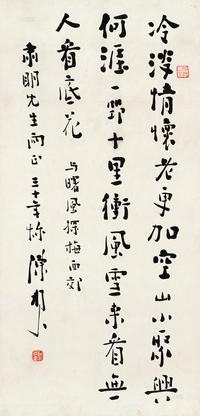 冷淡情懷老更加空山小聚興
何涯一十里衝風雪來看無
人看底花 與曙風探梅西郊
肅明先生正 三十年秋 陳樹人